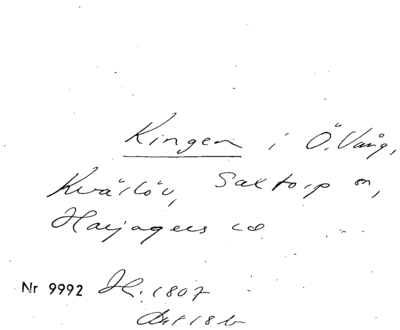 Kingen i Ö. Vång,
Kvärlöv, Saxtorp sn,
Harjagers hd
Nr 9992 H. 1807